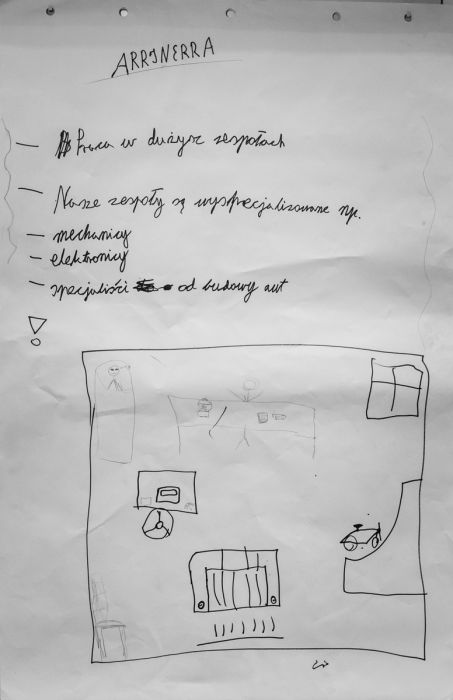 ARRINERRA
— Praca w dużysz zespołach
— Nasze zespoły są wyspecjalizowane np.
— mechanicy
— elektronicy
— specjaliści od budowy aut